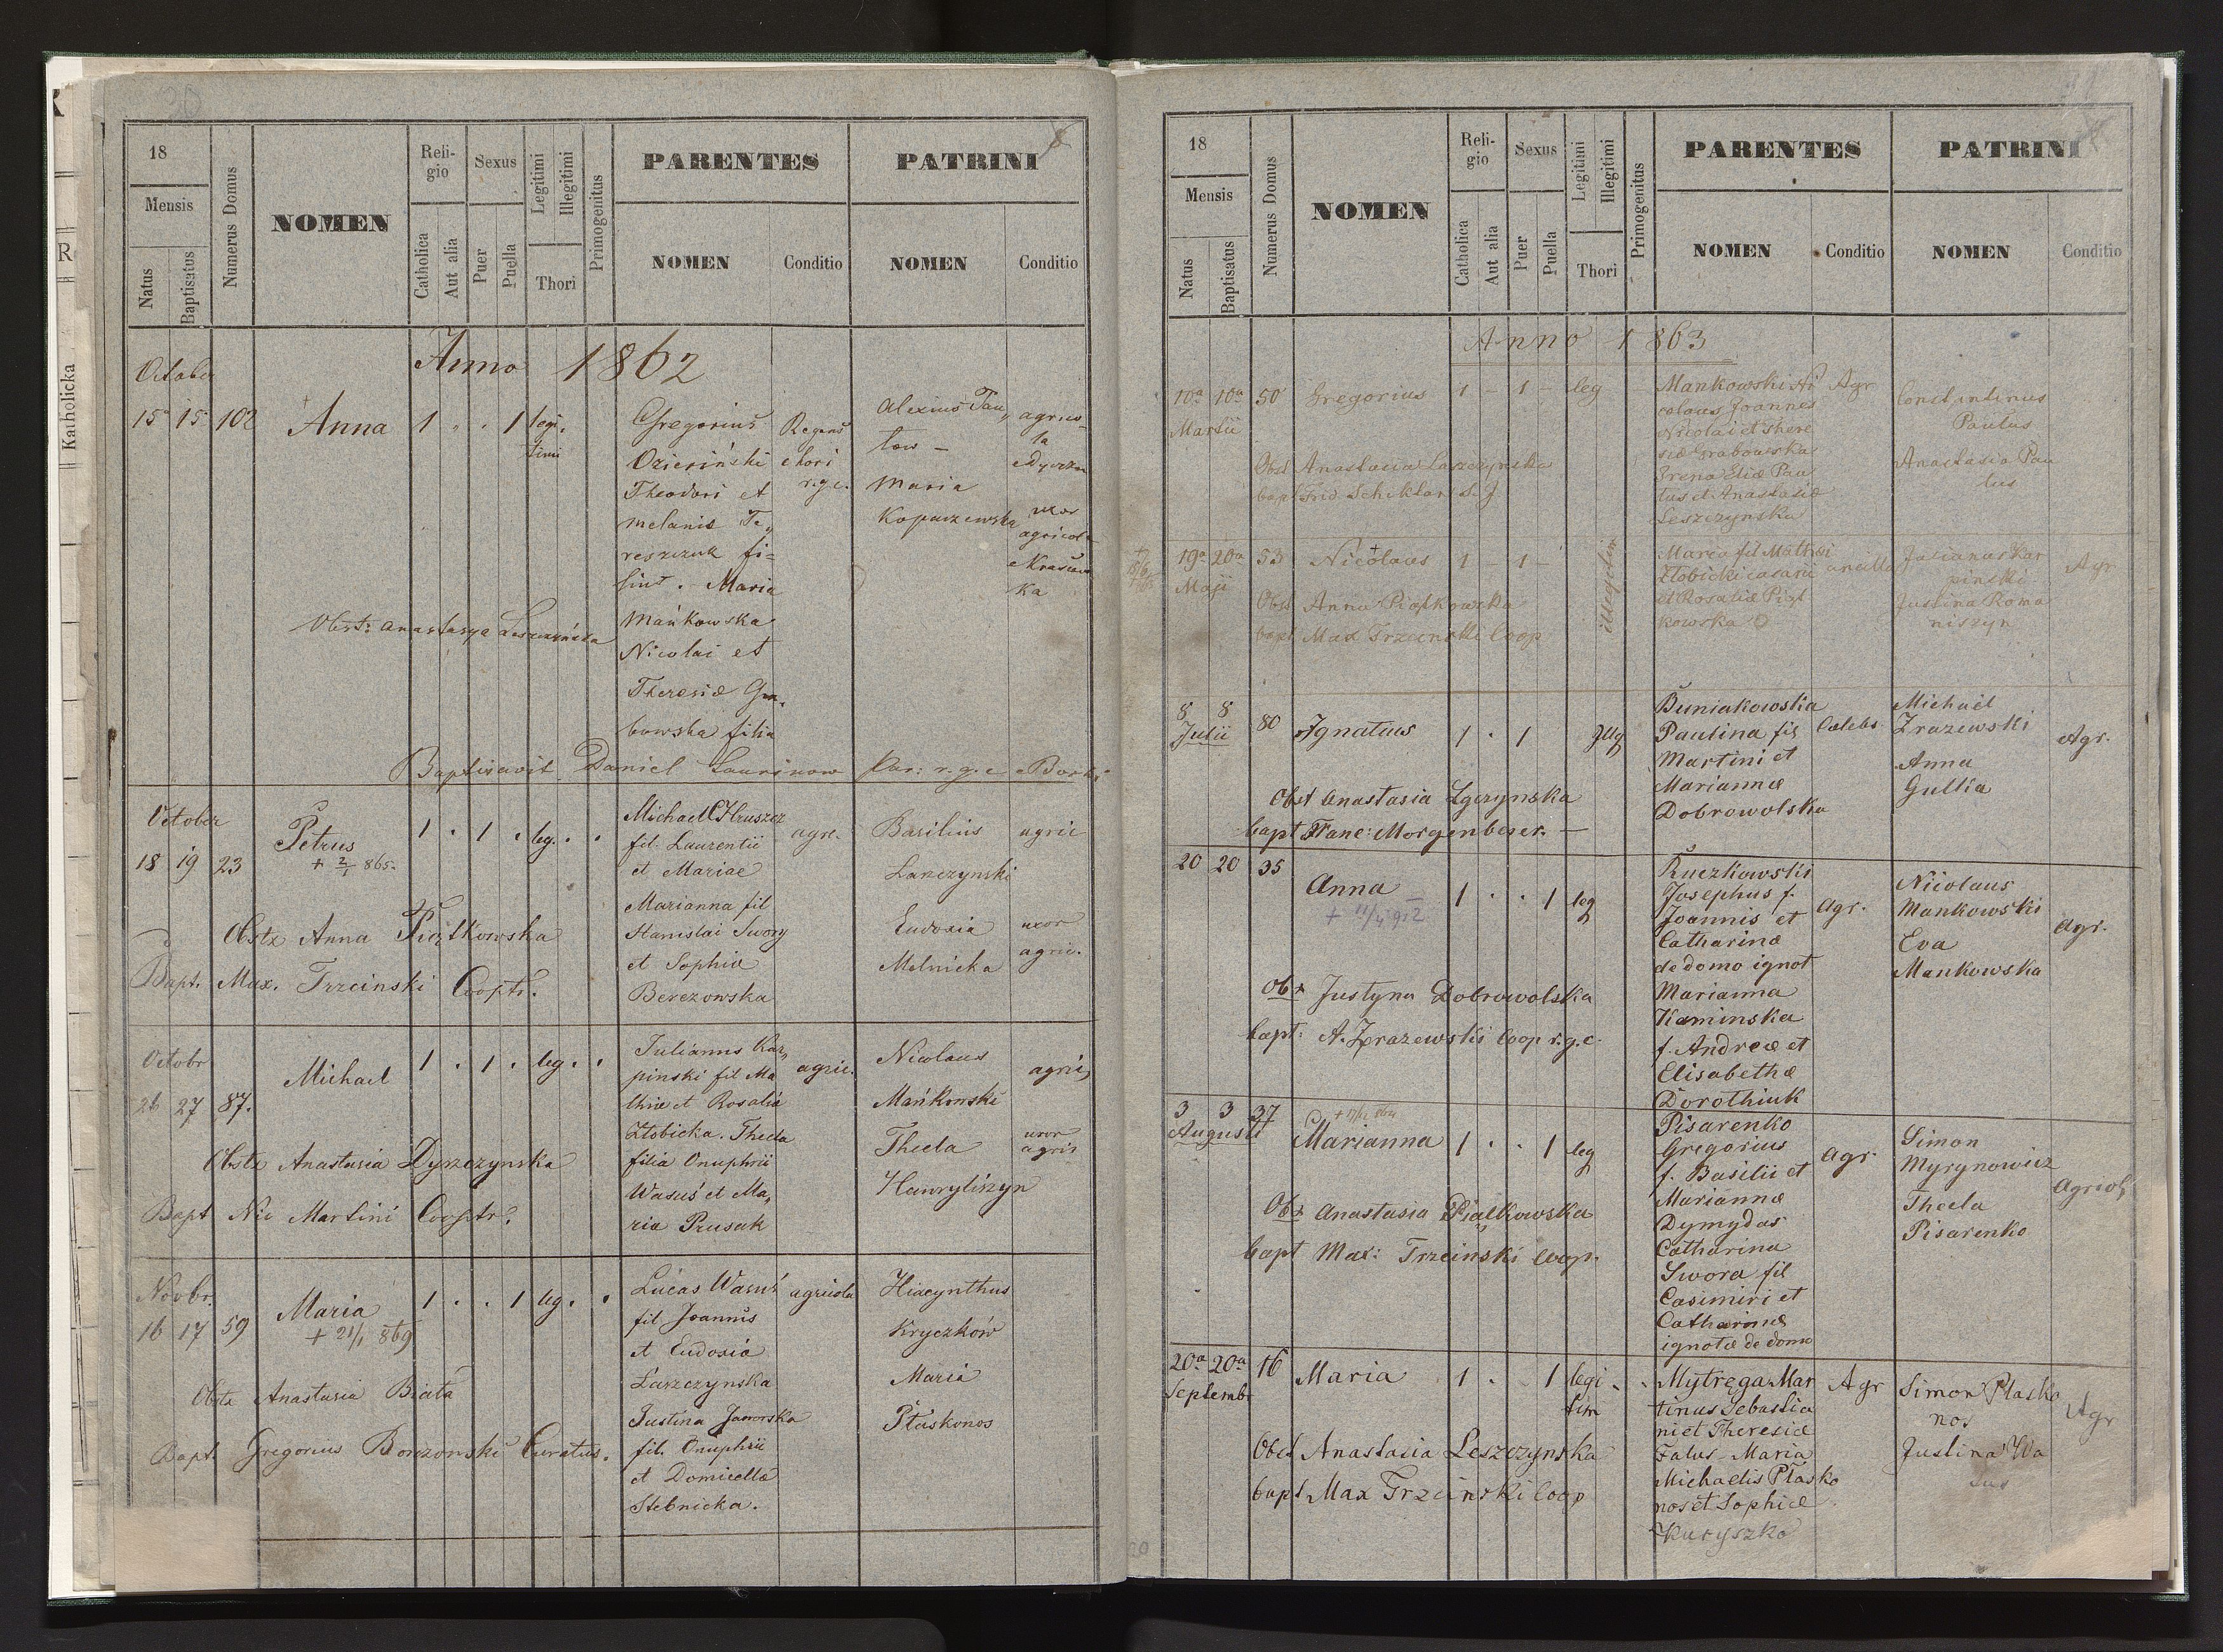 18
Mensis
Natus
Baptisatus
Numerus Domus
NOMEN
Religio
Catholica
Aut alia
Sexus
Puer
Puella
Legitimi
Illegitimi
Thori
Primogenitus
PARENTES
NOMEN
Conditio
PATRINI
NOMEN
Conditio
Anno 1862
October
15 15 102 Anna 1 " . 1 legi.
timi
Gregorius
Ozieriński
Theodori et
melanie Te„
reszczuk fi=
lius . Maria
Mańkowska
Nicolai et
Theresiæ Gra„
bowska filia
Regens
chori
r.g.c.
Alexius Pau„
low –
Maria
Koparzewska
agrico-
la
uxor
agricola
Obst: Anastasya Leszczyńska
Baptisavit Daniel Laurinow Par: r.g.c Borki
October
18 19 23 Petrus 1 . 1 . leg. .
+ 2/1 865.
Michael Hruszcz
fil. Laurentii
et Mariae
Marianna fil
Stanislai Swory
et Sophiæ
Berezowska
agre.
Basilius
Larczynski
Eudoxia
Melnicka
agric
uxor
agric.
Obstx Anna Piątkowska
Bapt. Max. Trzcinski Cooptr.
Octobr
26 27 87. Michael 1 . 1 . leg. .
Julianus Kar„
pinski fil Ma
thiæ et Rosalia
Złobicka. Thecla
filia Onuphrii
Wasuś et Ma„
ria Prusak
agric.
Nicolaus
Mańkowski
Thecla
Hawryliszyn
agric,
uxor
agric
Obstx Anastasia Dyszczynska
Bapt Nic Martini Cooptr.
Novbr.
16 17 59 Maria 1 . . 1 leg. .
+ 21/1 869
Lucas Wasuś
fil Joannis
et Eudoxia
Larzczynska
Justina Jaworska
fil. Onuphrii
et Domicella
Stebnicka.
agricola
Hiacynthus
Kryczków
Maria
Płaskonos
Obstx Anastasia Biała
Bapt. Gregorius Borzonski Curatus.
18
Mensis
Natus
Baptisatus
Numerus Domus
NOMEN
Religio
Catholica
Aut alia
Sexus
Puer
Puella
Legitimi
Illegitimi
Thori
Primogenitus
PARENTES
NOMEN
Conditio
PATRINI
NOMEN
Conditio
Anno 1863
10a 10a 50 Gregorius 1 – 1 – leg
Martii
Mankowski Ni
colaus Joannes
Nicolai et There
siæ Grabowska
Irena Eliæ Pau
lus et Anastasiæ
Leszczynska
Agr
Constantinus
Paulus
Anastasia Pau
lus
Obst Anastasia Laszczynska
bapt Frid Schiklar S. J.
19a 20a 53 Nicolaus 1 – 1 – illegitim
Maji
Maria fil Mathæi
Złobicki casarii
et Rosaliæ Piąt
kowska
ancilla
Julianus Kar
pinski
Justina Roma
niszyn
Agr
Obst Anna Piątkowska
bapt Max Trzcinski Coop
8 8 80 Ignatius 1 . 1 Illeg
Julii
Buniakowska
Paulina fil
Martini et
Mariannæ
Dobrowolska
Cælebs
Michael
Zrazewski
Anna
Gulka
Agr.
Obst Anastasia Lgczynska
bapt Franc: Morgenbeser. –
20 20 35 Anna 1 . . 1 leg
+ 11/4 912
Ruczkowski
Josephus f.
Joannis et
Catharinæ
de domo ignot
Marianna
Kaminska
f. Andreæ et
Elisabethæ
Dorothiuk
Agr.
Nicolaus
Mankowski
Eva
Mankowska
Agr.
Obx Justyna Dobrowolska
bapt: A. Zprazewski Coop r.g.c.
3 3 37 Marianna 1 . . 1 leg
Augusti
Pisarenko
Gregorius
f. Basilii et
Mariannæ
Dymydas
Catharina
Swora fil
Casimiri et
Catharinæ
ignotæ de domo
Agr.
Simon
Myrynowicz
Thecla
Pisarenko
Agricol,
Obx Anastasia Piątkowska
bapt Max: Trzcinski Coop.
20a 20a 16 Maria 1 . . 1 legi . .
Septembr
tim
Mytręga Mar
tinus Sebastia
ni et Theresiæ
Falus Maria
Michaelis Płasko
nos et Sophiæ
Kuryszko
Agr
Simon Plasko
nos
Justina Wa
sus
Agr
Obst Anastasia Leszczynska
bapt Max Trzcinski Coop
Katholicka